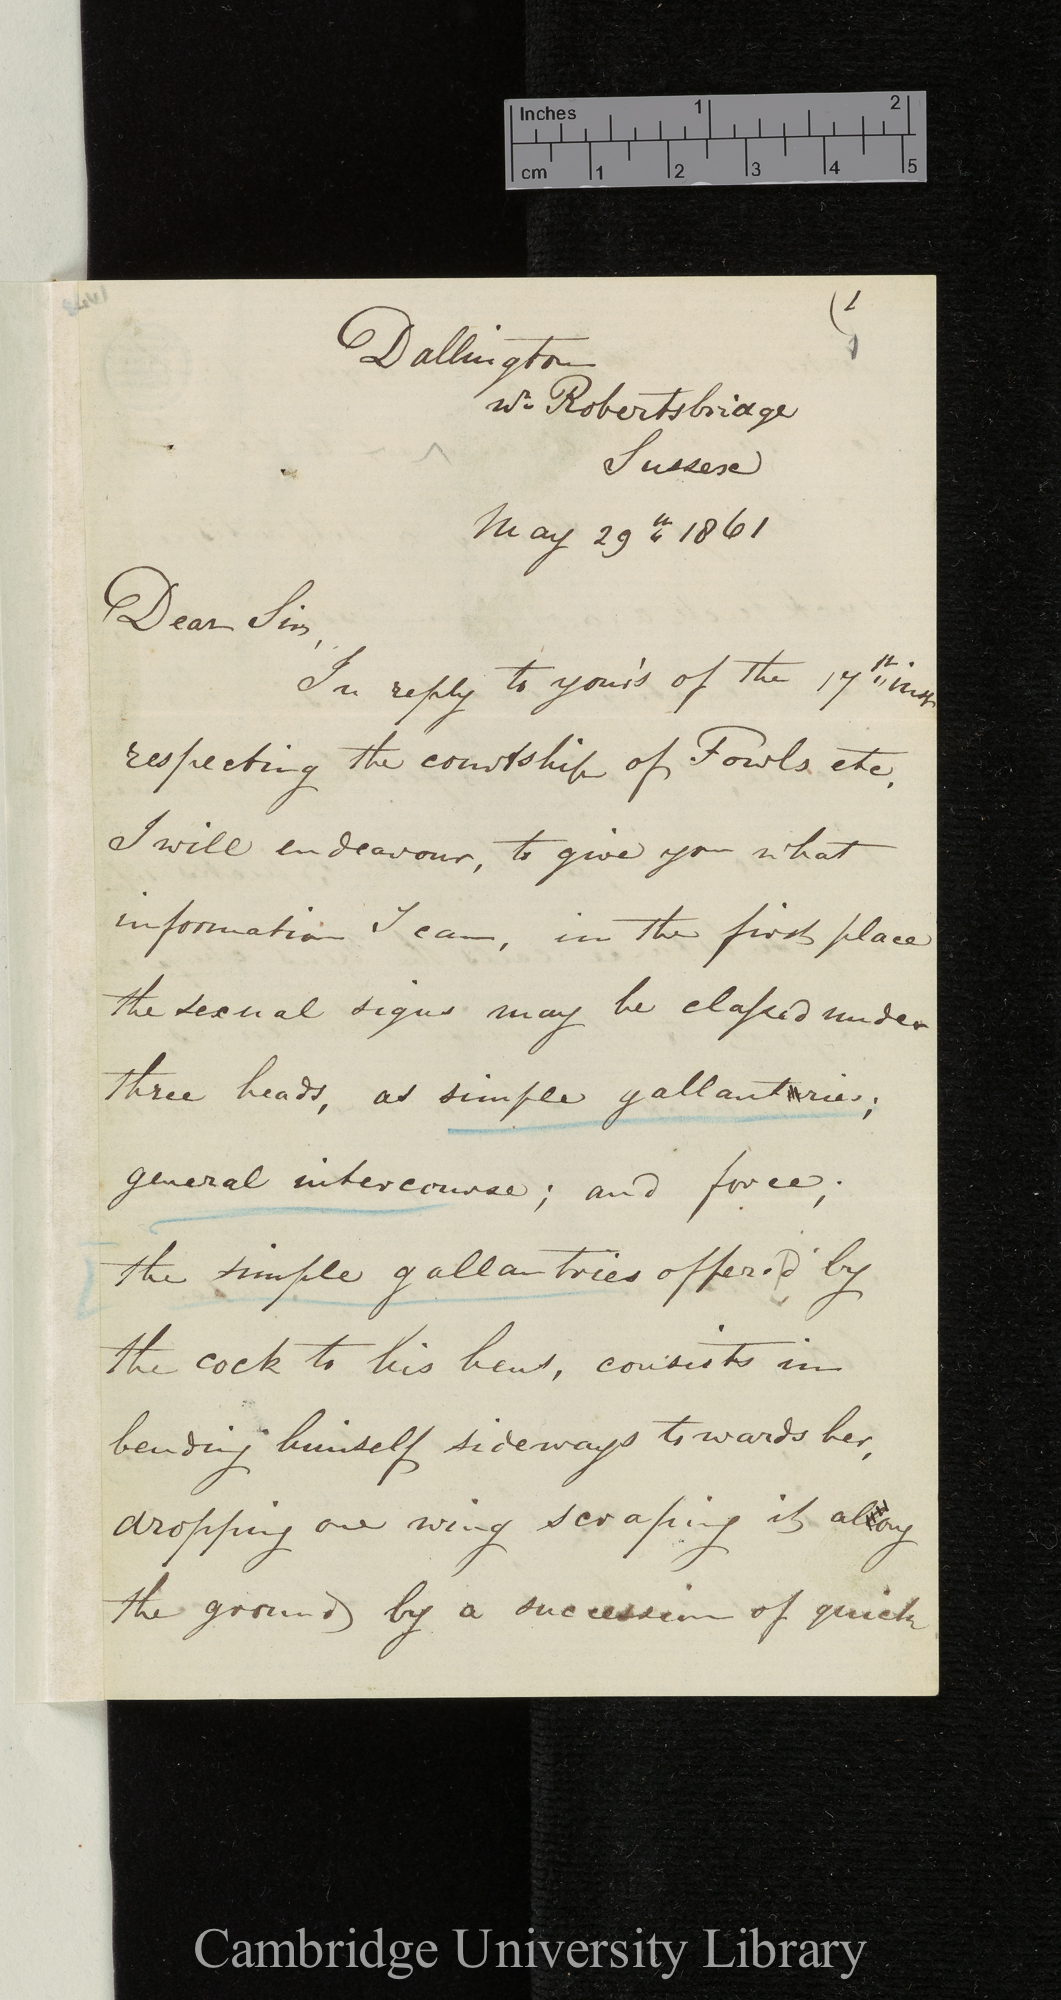 Inches 1 2
cm 1 2 3 4 5
(1
Dallington
Nr. Robertsbridge
Sussex
May 29th 1861
Dear Sir,
In reply to your's of the 17th inst
respecting the courtship of Fowls etc,
I will endeavour, to give you what
information I can, in the first place
the sexual signs may be classed under
three heads, as simple gallantries;
general intercourse; and force;
the simple gallantries offer'd by
the cock to his hens, consists in
bending himself sideways towards her,
dropping one wing scraping it along
the ground by a succession of quick
Cambridge University Library